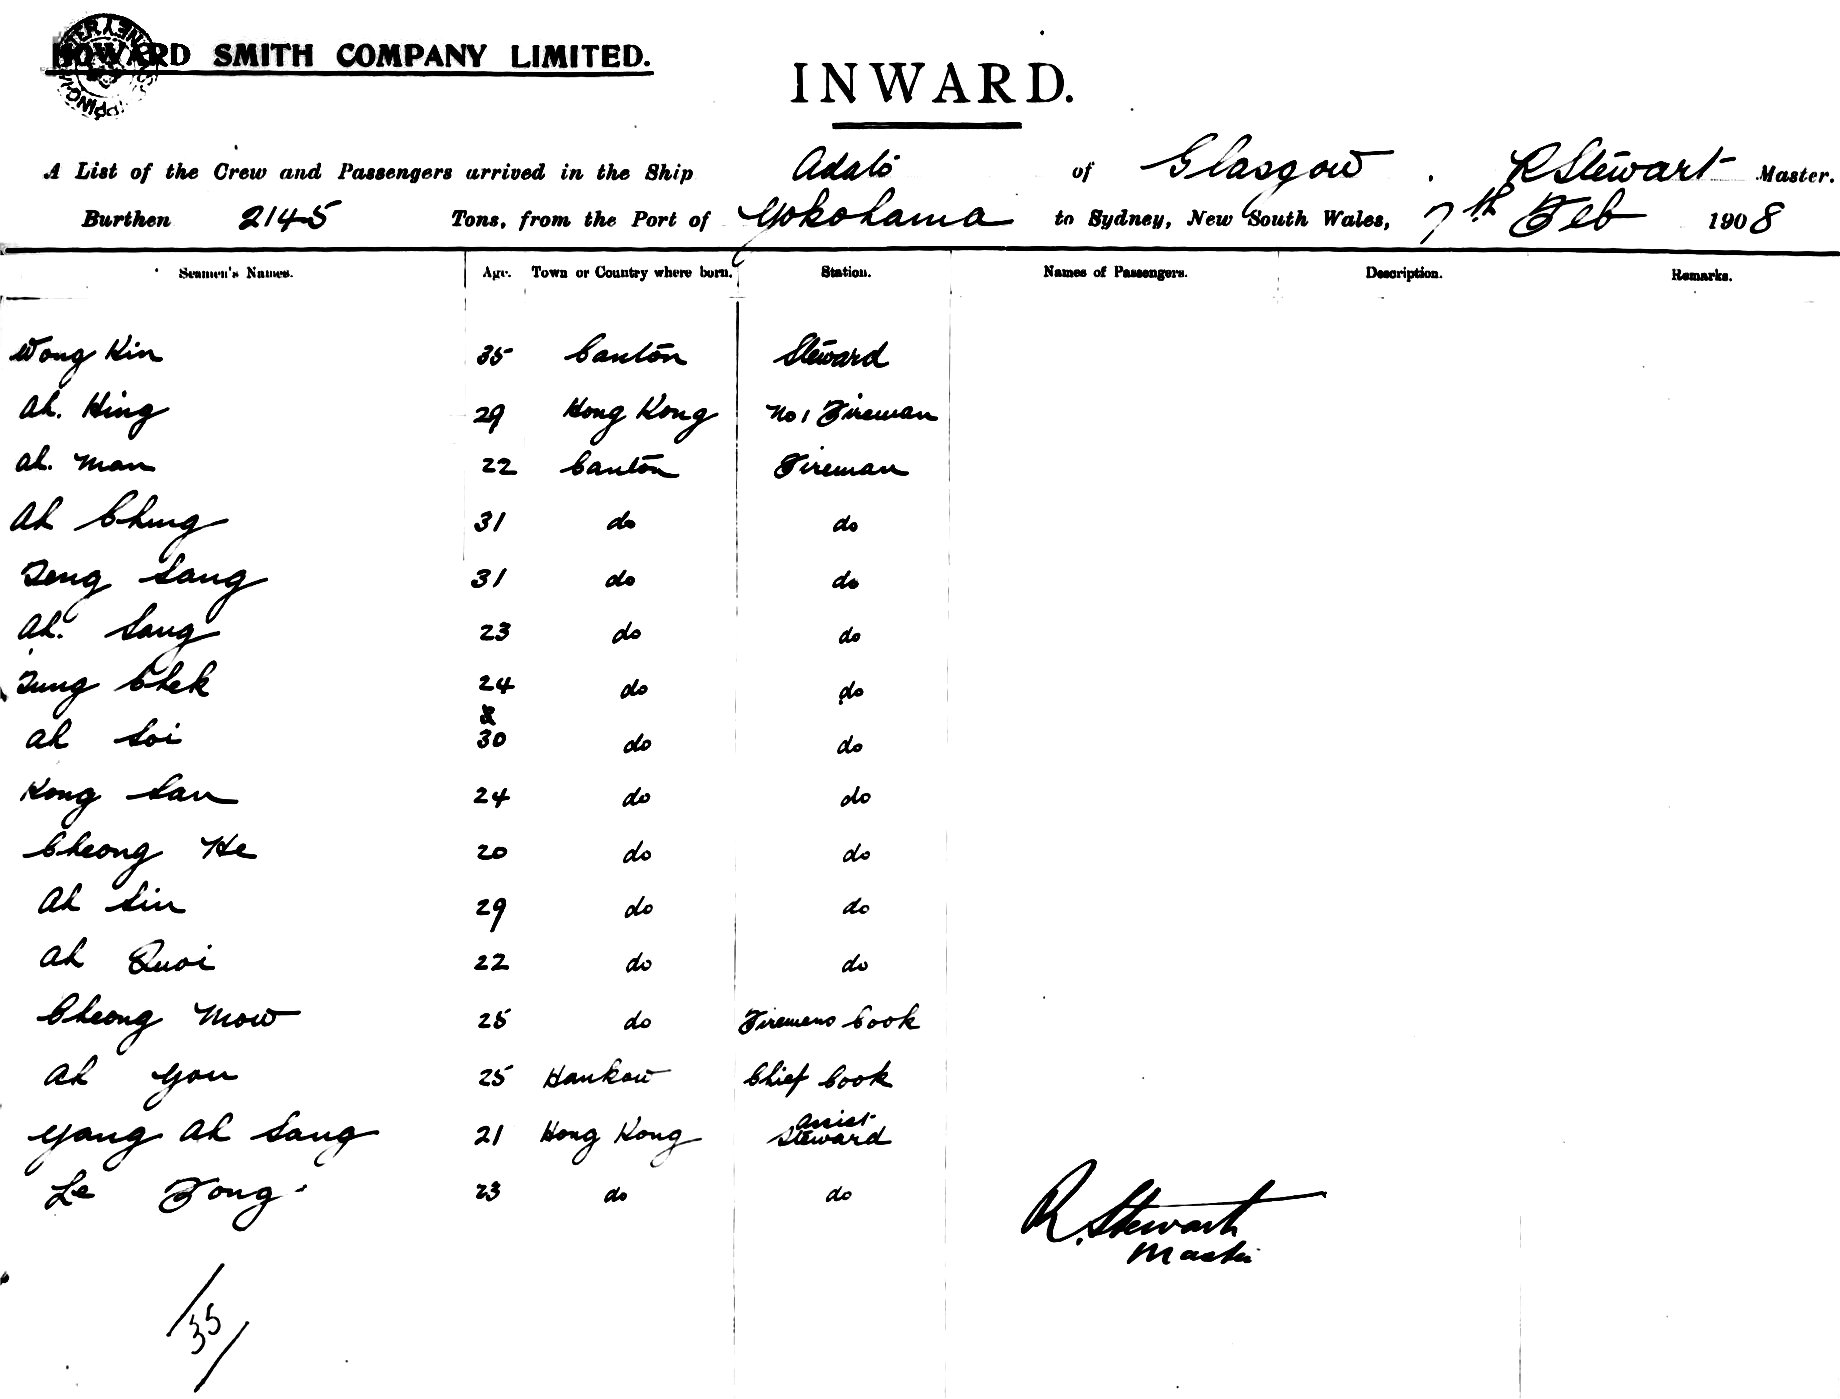 HOWARD SMITH COMPANY LIMITED.
INWARD.
A List of the Crew and Passengers arrived in the Ship Adato of Glasgow. R Stewart Master.
Burthen 2145 Tons, from the Port of Yokohama to Sydney, New South Wales, 7th Feb 1908
Seamen's Names. Age. Town or Country where born. Station. Names of Passengers. Description. Remarks.
Wong Kin 35 Canton Steward
Ah. Hing 29 Hong Kong No 1 Fireman
Ah. Man 22 Canton Fireman
Ah Chung 31 do do
Teng Sang 31 do do
Ah. Sang 23 do do
Tung Chek 24 do do
Ah Soi 30 do do
Kong San 24 do do
Cheong He 20 do do
Ah Sin 29 do do
Ah Quoi 22 do do
Cheong Mow 25 do Firemens Cook
Ah You 25 Hankow Chief Cook
Yang Ah Sang 21 Hong Kong Assist Steward
Le Fong 23 do do
R. Stewart
Master
/35/